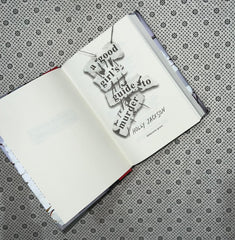 a good
girl's
guide to
murder
HOLLY JACKSON